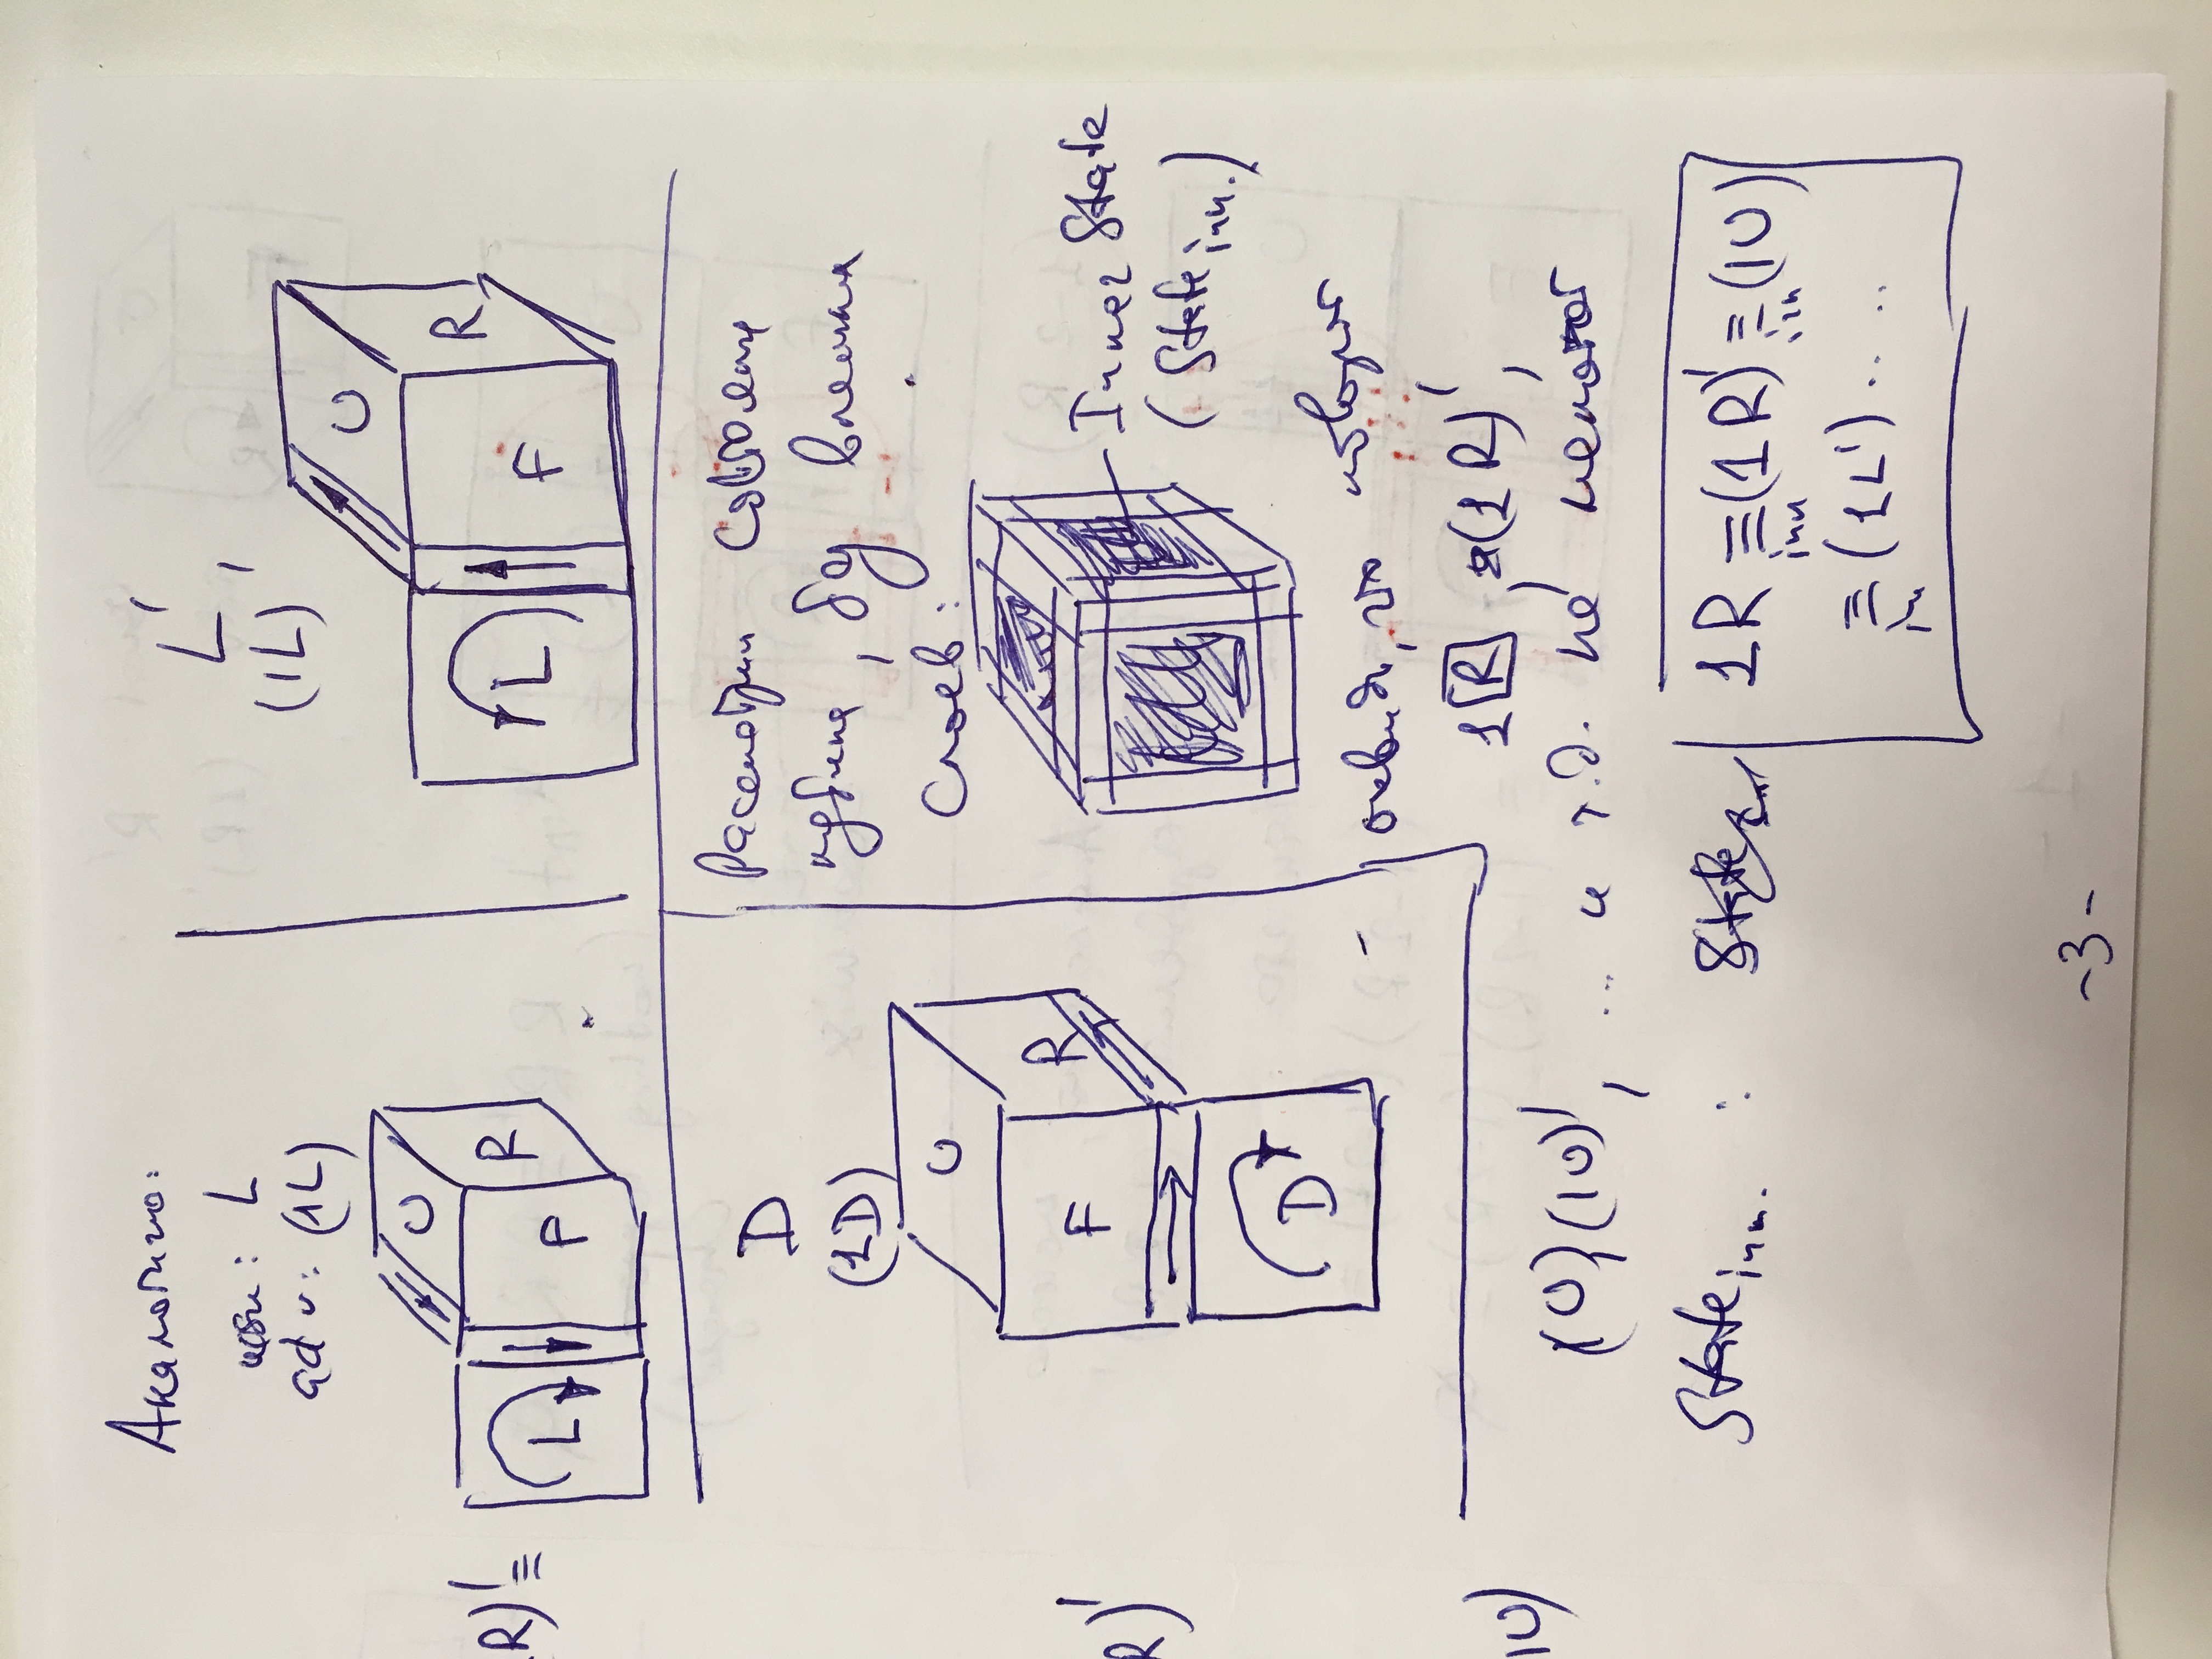 Аналогично:
L
adv: (1L)
L',
(1L)'
U
L
F
R
U
L
F
R
R)' ≡
D
(1D)
U
F
R
D
Рассмотрим состояние
кубика, без внешних
слоев:
Inner State
(State inn.)
R)'
очевидно, что поворот
1R, (1R)',
1U)
(U), (1U)', ... и т.д. не меняют
State inn. : State inn
1R ≡ inn (1R)' ≡ inn (1U)
≡ in (1L') .....
-3-